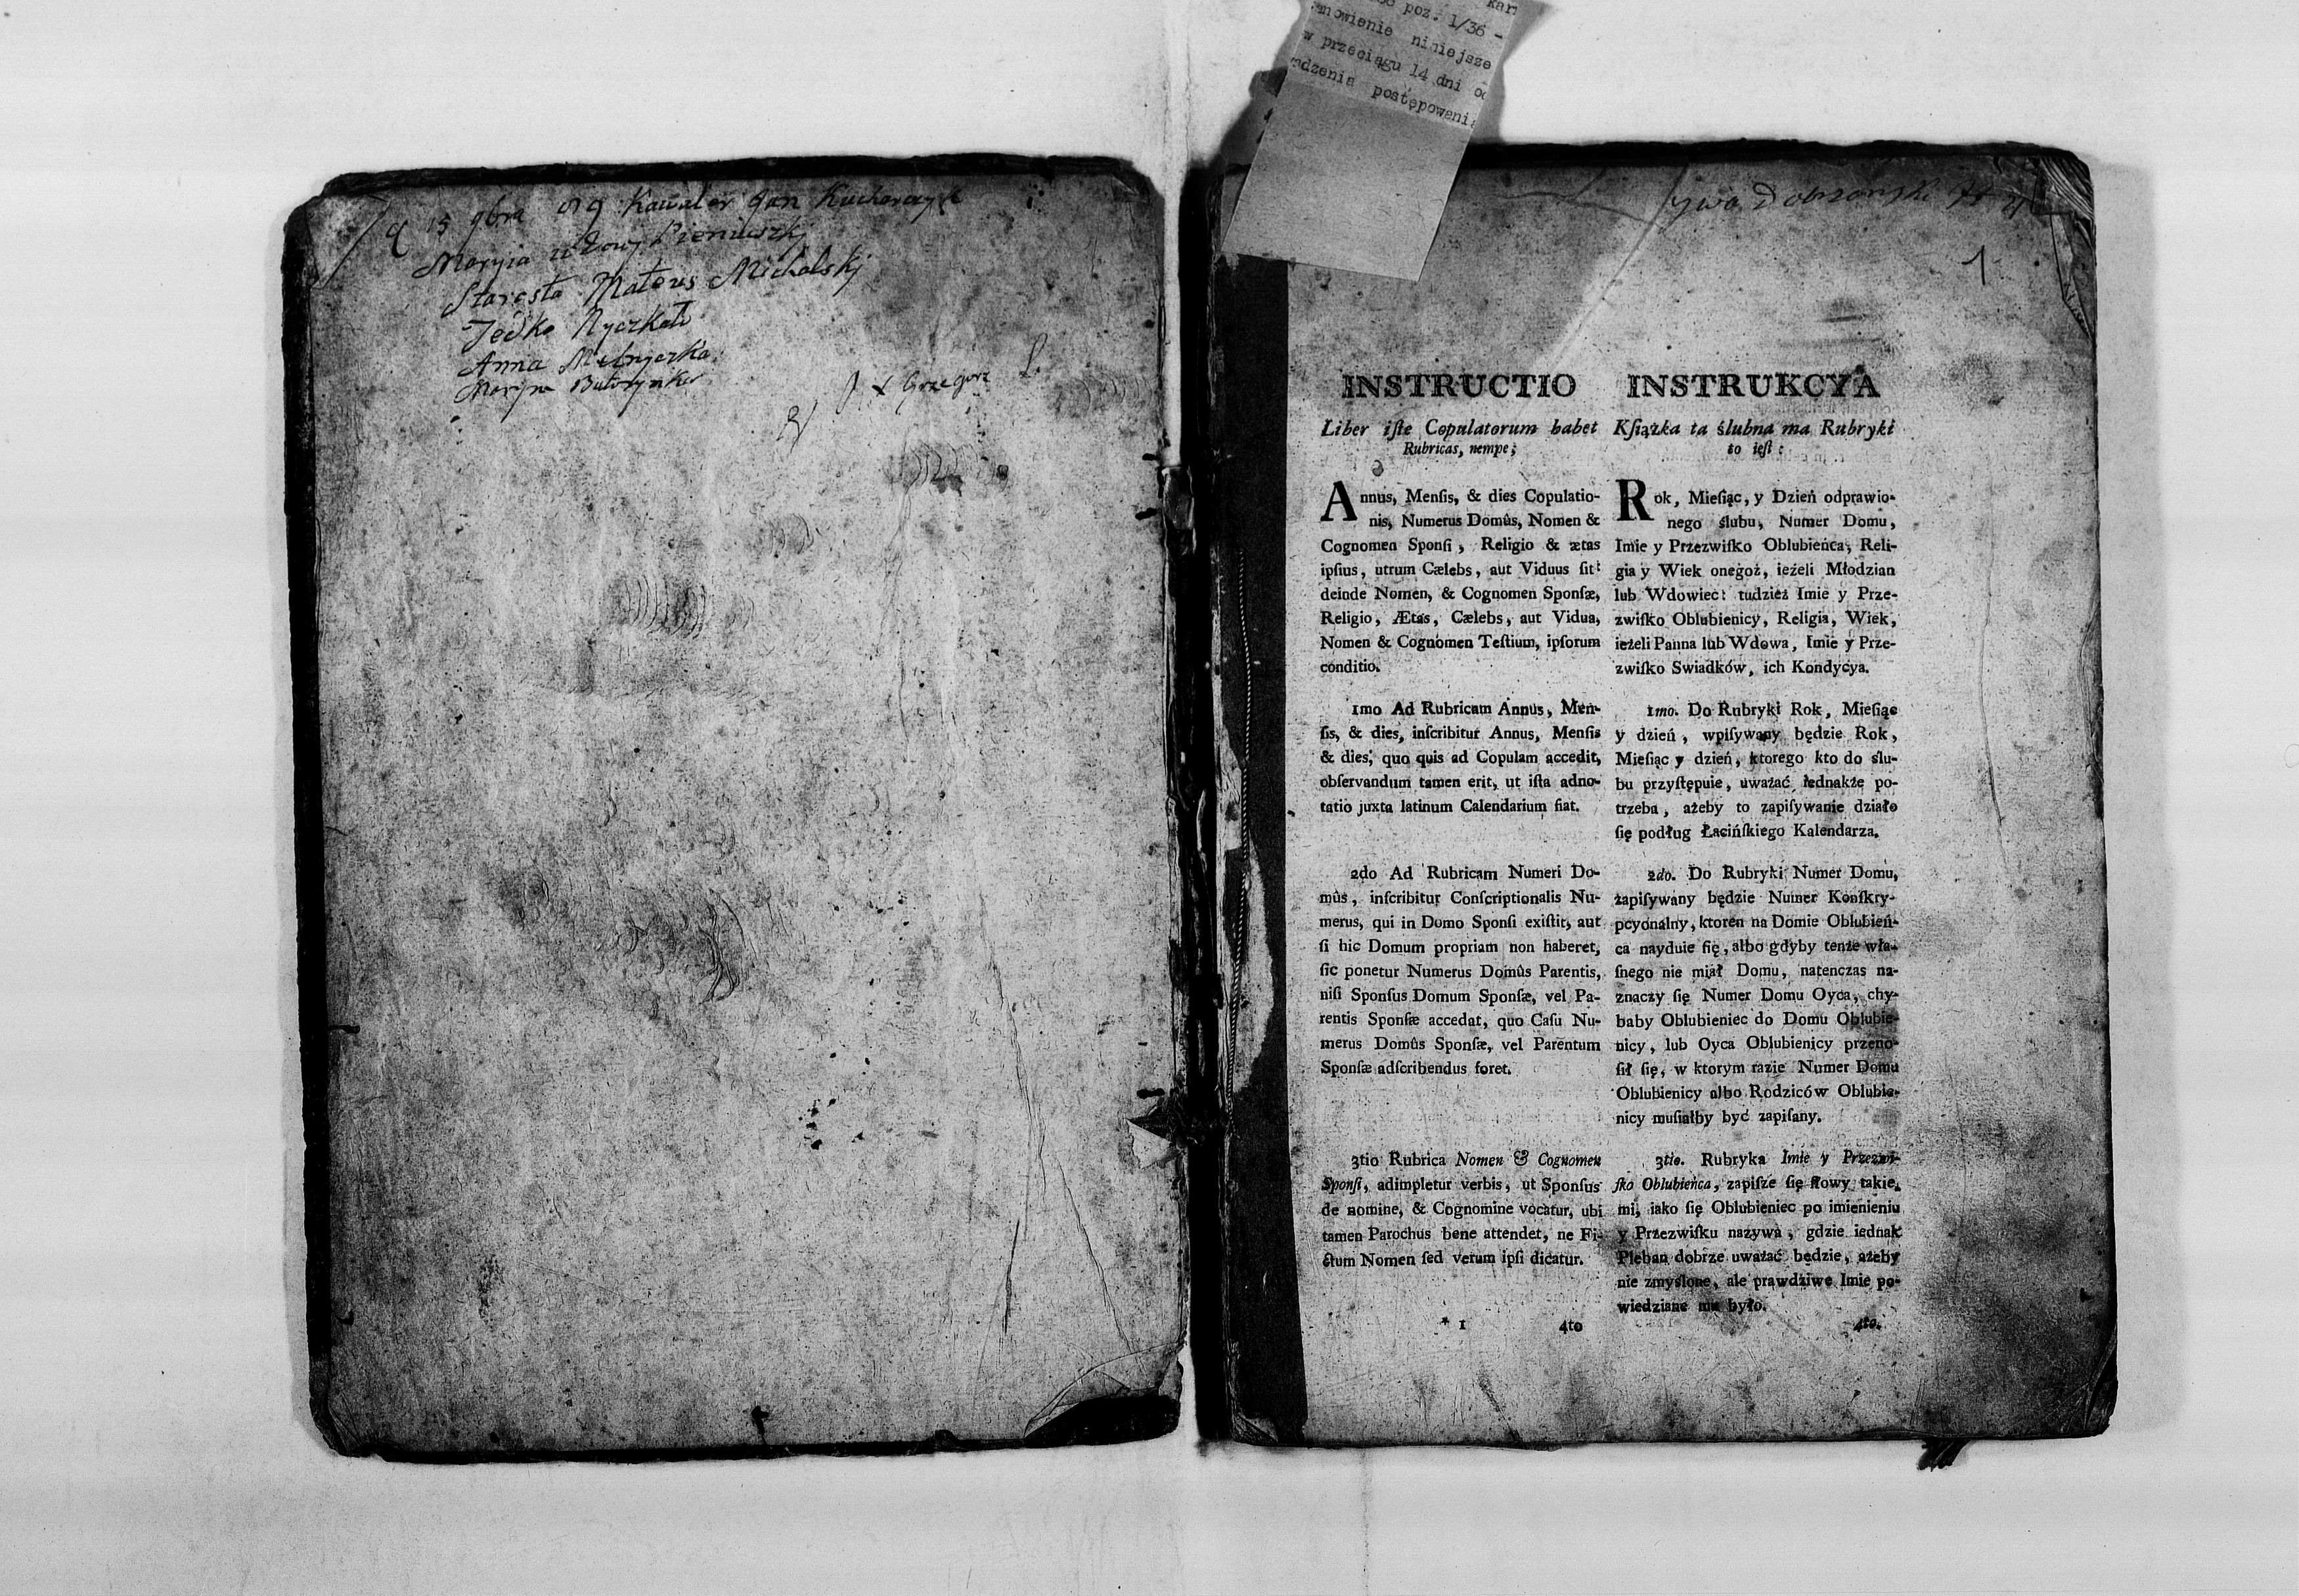 15 9bra 819 Kawaler Jan Kucharczyk
Maryia
Starosta Mateus Michalskj
Jedko
Anna
Grzegorz
poz. 1/36 -
niniejsze
w przeciągu 14 dni
postępowani
1
INSTRUCTIO
Liber iſte Copulatorum habet
Rubricas, nempe;
Annus, Menſis, & dies Copulatio-
nis, Numerus Domûs, Nomen &
Cognomen Sponſi, Religio & ætas
ipſius, utrum Cælebs, aut Viduus ſit:
deinde Nomen, & Cognomen Sponſæ,
Religio, Ætas, Cælebs, aut Vidua,
Nomen & Cognomen Teſtium, ipſorum
conditio.
1mo Ad Rubricam Annus, Men-
ſis, & dies, inſcribitur Annus, Menſis
& dies, quo quis ad Copulam accedit,
obſervandum tamen erit, ut iſta adno-
tatio juxta latinum Calendarium fiat.
2do Ad Rubricam Numeri Do-
mûs, inſcribitur Conſcriptionalis Nu-
merus, qui in Domo Sponſi exiſtit, aut
ſi hic Domum propriam non haberet,
ſic ponetur Numerus Domûs Parentis,
niſi Sponſus Domum Sponſæ, vel Pa-
rentis Sponſæ accedat, quo Caſu Nu-
merus Domûs Sponſæ, vel Parentum
Sponſæ adſcribendus foret.
3tio Rubrica Nomen & Cognomen
Sponſi, adimpletur verbis, ut Sponſus
de nomine, & Cognomine vocatur, ubi
tamen Parochus bene attendet, ne Fi-
ctum Nomen ſed verum ipſi dicatur.
* 1 4to
INSTRUKCYA
Kſiążka ta ślubna ma Rubryki
to ieſt:
Rok, Mieſiąc, y Dzień odprawio-
nego ślubu, Numer Domu,
Imie y Przezwiſko Oblubieńca, Reli-
gia y Wiek onegoż, ieżeli Młodzian
lub Wdowiec: tudzież Imie y Prze-
zwiſko Oblubienicy, Religia, Wiek,
ieżeli Panna lub Wdowa, Imie y Prze-
zwiſko Swiadków, ich Kondycya.
1mo. Do Rubryki Rok, Mieſiąc
y dzień, wpiſywany będzie Rok,
Mieſiąc y dzień, ktorego kto do ślu-
bu przyſtępuie, uważać iednakże po-
trzeba, ażeby to zapiſywanie działo
ſię podług Łacińſkiego Kalendarza.
2do. Do Rubryki Numer Domu,
zapiſywany będzie Numer Konſkry-
pcyonalny, ktoren na Domie Oblubień-
ca nayduie ſię, albo gdyby tenże wła-
ſnego nie miał Domu, natenczas na-
znaczy ſię Numer Domu Oyca, chy-
baby Oblubieniec do Domu Oblubie-
nicy, lub Oyca Oblubienicy przeno-
ſił ſię, w ktorym razie Numer Domu
Oblubienicy albo Rodziców Oblubie-
nicy muſiałby być zapiſany.
3tio. Rubryka Imie y Przezwi-
ſko Oblubieńca, zapiſze ſię ſłowy takie-
mi, iako ſię Oblubieniec po imienieniu
y Przezwiſku nazywa, gdzie iednak
Pleban dobrze uważać będzie, ażeby
nie zmyślone, ale prawdziwe Imie po-
wiedziane mu było.
4to.